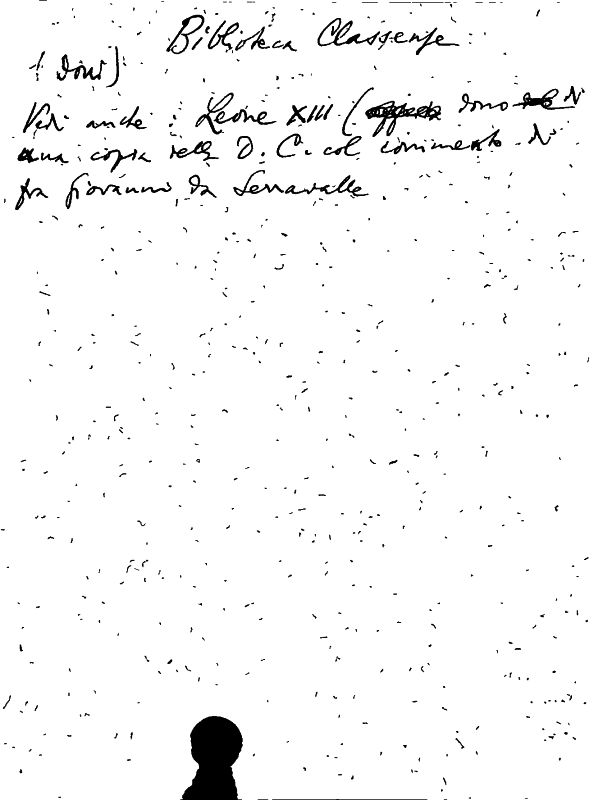 Biblioteca Classense
(Doni)
Vedi anche : Leone XIII ( dono di
una copia della D. C. col commento di
fra Giovanni da Serravalle.